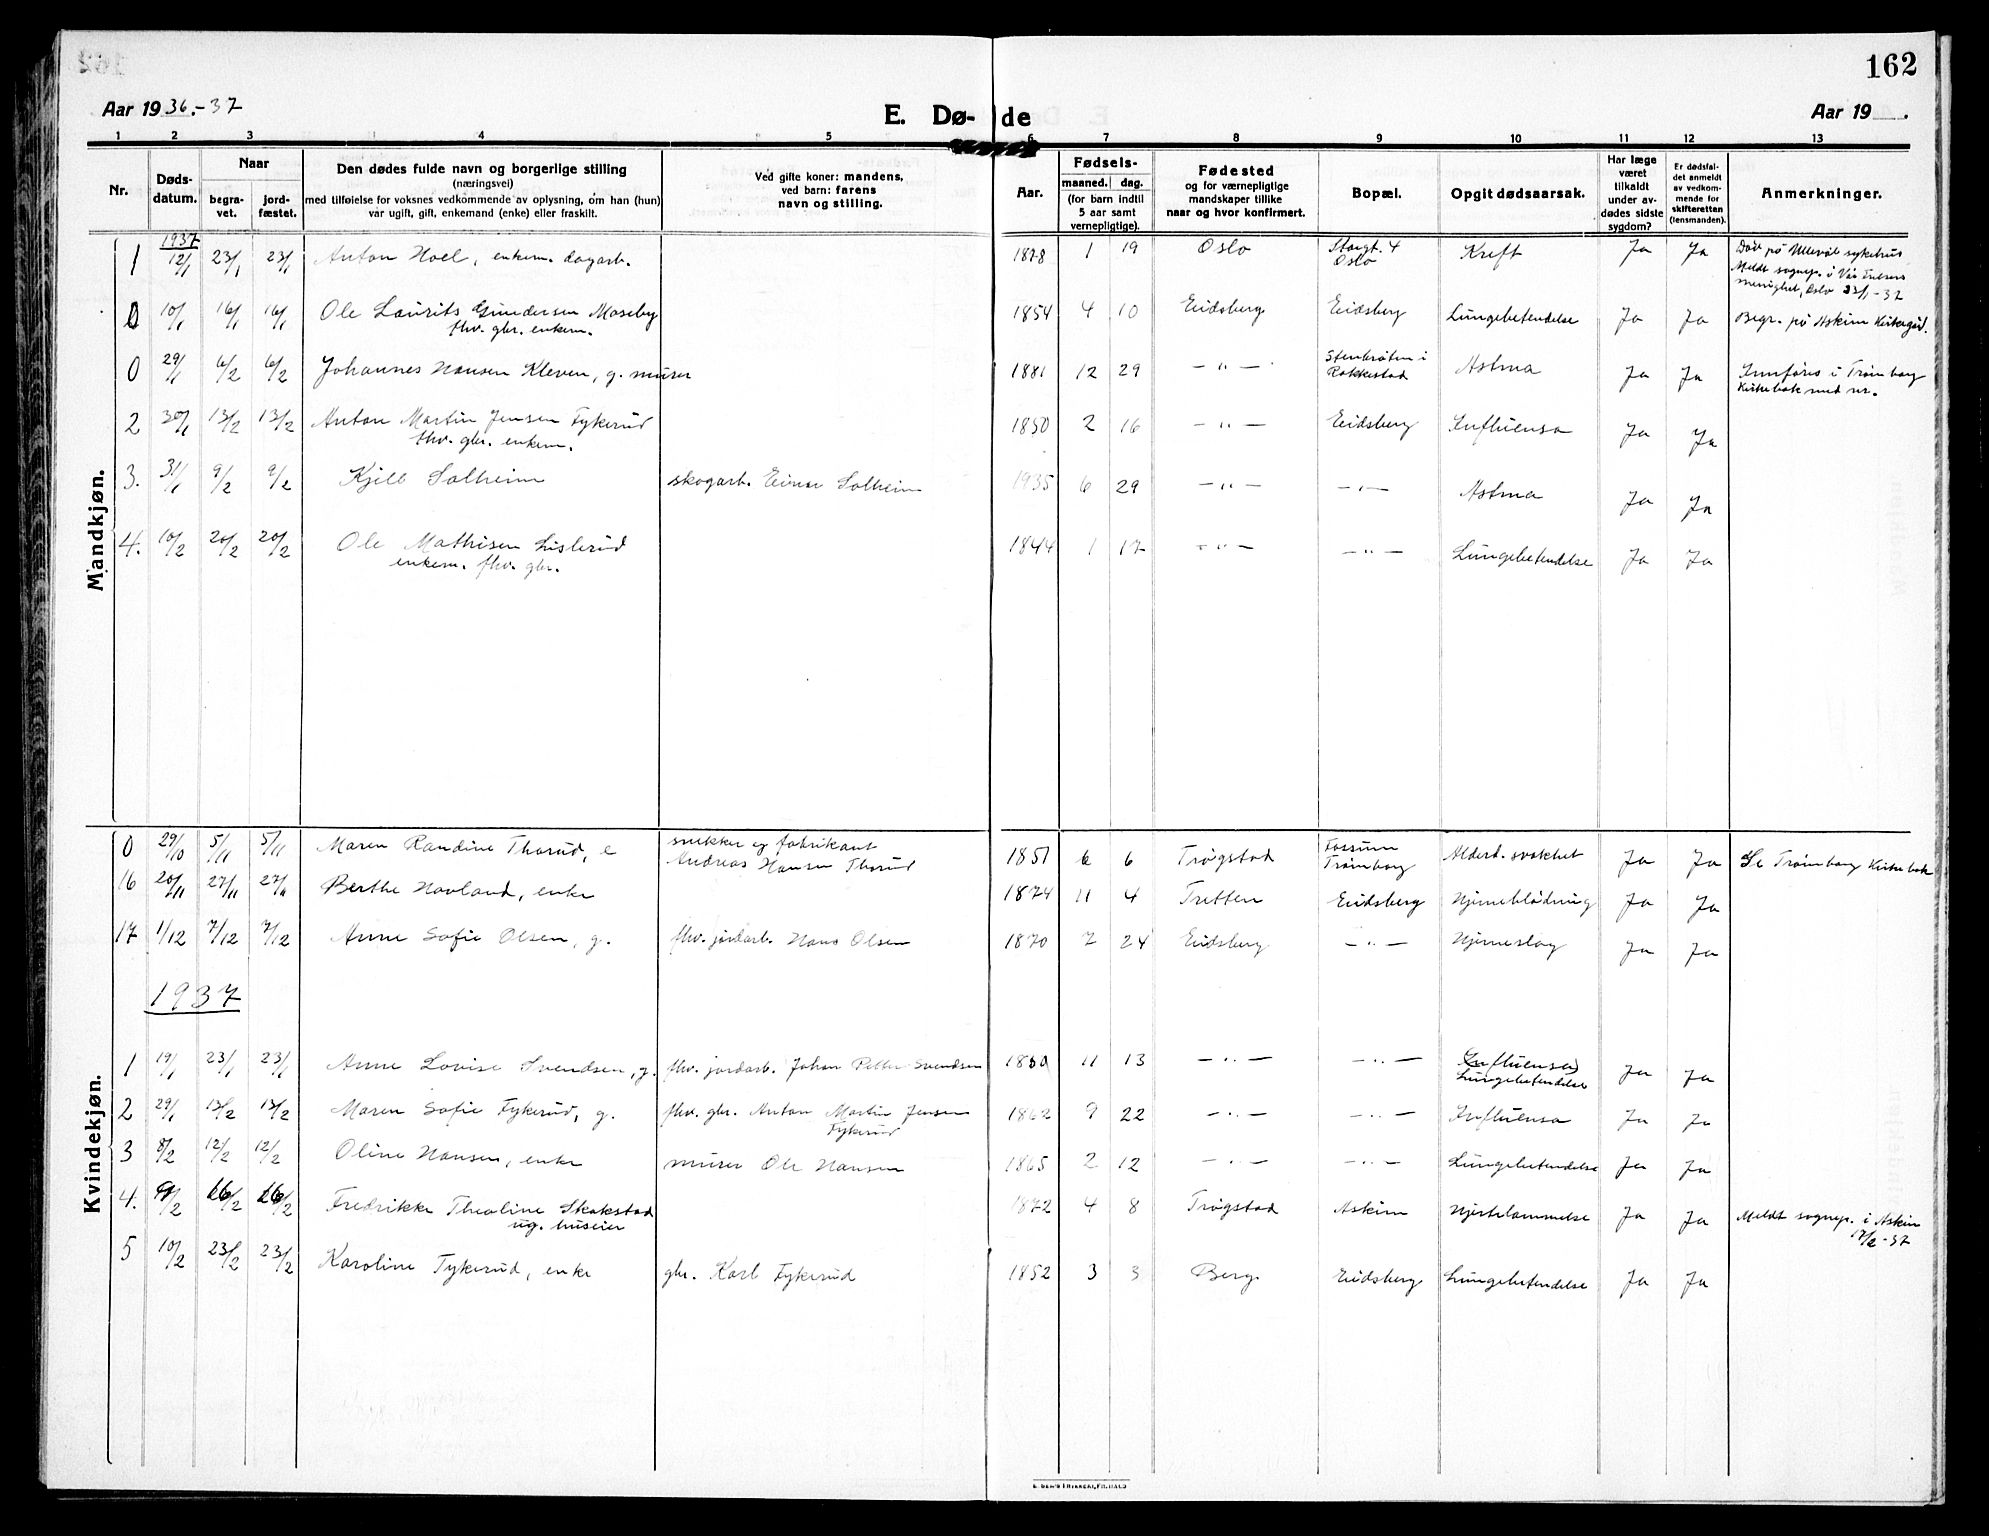 162
Aar 1936.-37
E. Dø- de
Aar 19 .
1 2 3 4 5 6 7 8 9 10 11 12 13
Nr.
Døds-
datum.
Naar
begra-
vet.
jord-
fæstet.
Den dødes fulde navn og borgerlige stilling
(næringsvei)
med tilføielse for voksnes vedkommende av oplysning, om han (hun)
var ugift, gift, enkemand (enke) eller fraskilt.
Ved gifte koner: mandens,
ved barn: farens
navn og stilling.
Aar.
Fødsels-
maaned. dag.
(for barn indtil
5 aar samt
vernepligtige).
Fødested
og for værnepligtige
mandskaper tillike
naar og hvor konfirmert.
Bopæl.
Opgit dødsaarsak.
Har læge
været
tilkaldt
under av-
dødes sidste
sygdom?
Er dødsfal-
det anmeldt
av vedkom-
mende for
skifteretten
(lensmanden).
Anmerkninger.
Mandkjøn.
1937
1 12/1 23/1 23/1 Anton Noel, enkem. dagarb. 1878 1 19 Oslo Storgt. 4 Oslo Kreft Ja Ja Død på Ullevål sykehus
Meldt sognep. i Vår Frelsers
menighet, Oslo 23/1-37
0 10/1 16/1 16/1 Ole Laurits Gundersen Moseby 1854 4 10 Eidsberg Eidsberg Lungebetendelse Ja Ja Begr. på Askim Kirkegård.
fhv. gbr. enkem.
0 29/1 6/2 6/2 Johannes Hansen Kleven, g. murer 1881 12 29 — " — Stenbråten i Rakkestad Astma Ja Ja Innføres i Trømborg
Kirkebok med nr.
2 30/1 13/2 13/2 Anton Martin Jensen Fykerud 1850 2 16 — " — Eidsberg Influensa Ja Ja
fhv. gbr. enkem.
3. 31/1 9/2 9/2 Kjell Solheim skogarb. Einar Solheim 1935 6 29 — " — — " — Astma Ja Ja
4. 10/2 20/2 20/2 Ole Mathisen Lislerud 1844 1 17 — " — — " — Lungebetendelse Ja Ja
enkem. fhv. gbr.
Kvindekjøn.
0 29/10 5/11 5/11 Maren Randine Thorud, e snekker og fabrikant Andreas Hansen Thorud 1851 6 6 Trøgstad Fossum Trømborg Alderd. svakhet Ja Ja Se Trømborg Kirkebok
16 20/11 27/11 27/11 Berthe Hovland, enke 1874 11 4 Tretten Eidsberg Hjerneblødning Ja Ja
17 1/12 7/12 7/12 Anne Sofie Olsen, g. fhv. jordarb. Hans Olsen 1870 7 24 Eidsberg — " — Hjerneslag Ja Ja
1937
1 19/1 23/1 23/1 Anne Lovise Svendsen, g. fhv. jordarb. Johan Petter Svendsen 1860 11 13 — " — — " — (Influensa) Lungebetendelse Ja Ja
2 29/1 13/2 13/2 Maren Sofie Fykerud, g. fhv. gbr. Anton Martin Jensen Fykerud 1862 9 22 — " — — " — Influensa Ja Ja
3 8/2 12/2 12/2 Oline Hansen, enke murer Ole Hansen 1865 2 12 — " — — " — Lungebetendelse Ja Ja
4. 9/2 16/2 16/2 Fredrikke Theoline Skakstad 1872 4 8 Trøgstad Askim Hjertelammelse Ja Ja Meldt sognep. i Askim
ug. huseier 17/2-37
5 10/2 23/2 23/2 Karoline Fykerud, enke gbr. Karl Fykerud 1852 3 3 Berg. Eidsberg Lungebetendelse Ja Ja